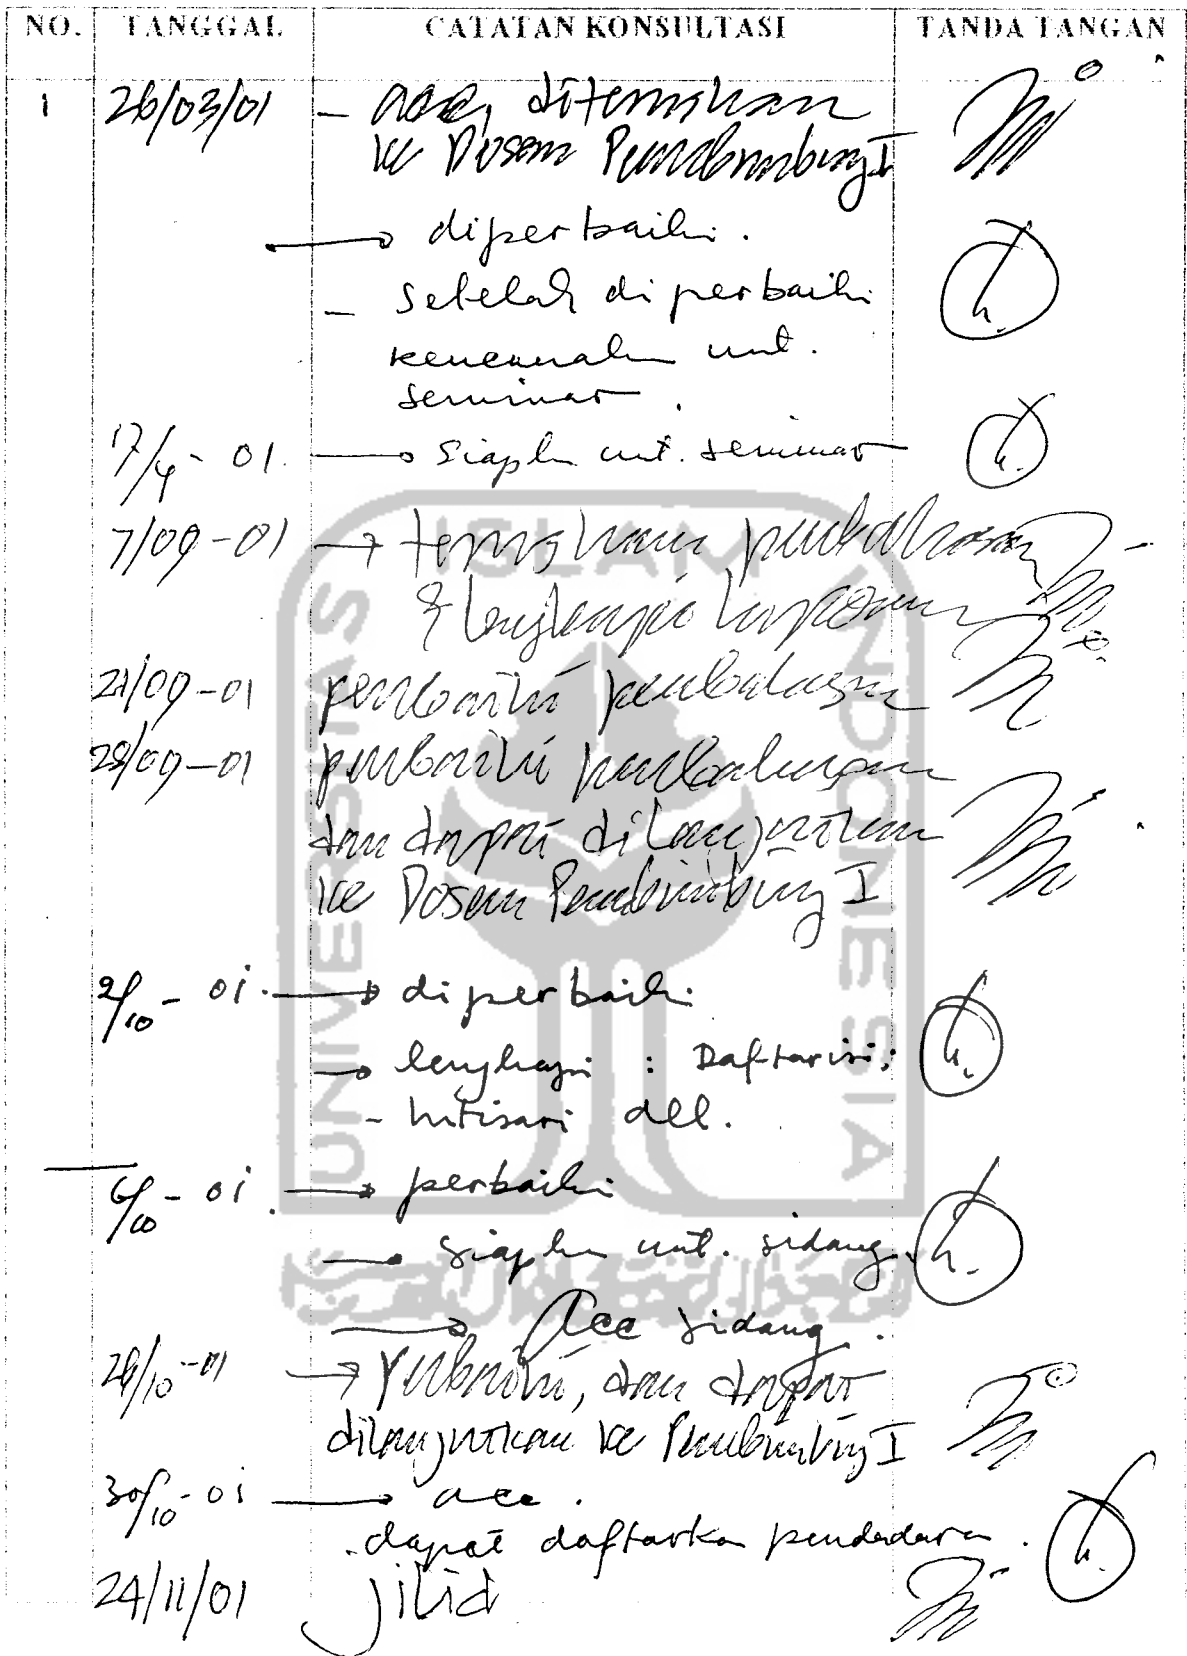 NO. TANGGAL CATATAN KONSULTASI TANDA TANGAN
1 26/03/01 - acc, diteruskan
ke Dosen Pembimbing I
→ diperbaiki.
- Setelah diperbaiki
unt.
seminar.
17/4-01. → Siapkn unt. seminar
7/09-01 → teruskan pembahasan
& lengkapi laporan
21/09-01 perbaiki pembahasan
28/09-01 perbaiki pembahasan
dan dapat dilanjutkan
ke Dosen Pembimbing I
2/10-01. → diperbaiki
→ lengkapi : Daftar isi;
- Intisari dll.
6/10-01. → perbaiki
→ Siapkn unt. sidang.
→ Acc sidang.
26/10-01 → Perbaiki, dan dapat
dilanjutkan ke Pembimbing I
30/10-01 → acc.
. dapat daftarkan pendadaran.
24/11/01 jilid
UNIVERSITAS ISLAM INDONESIA